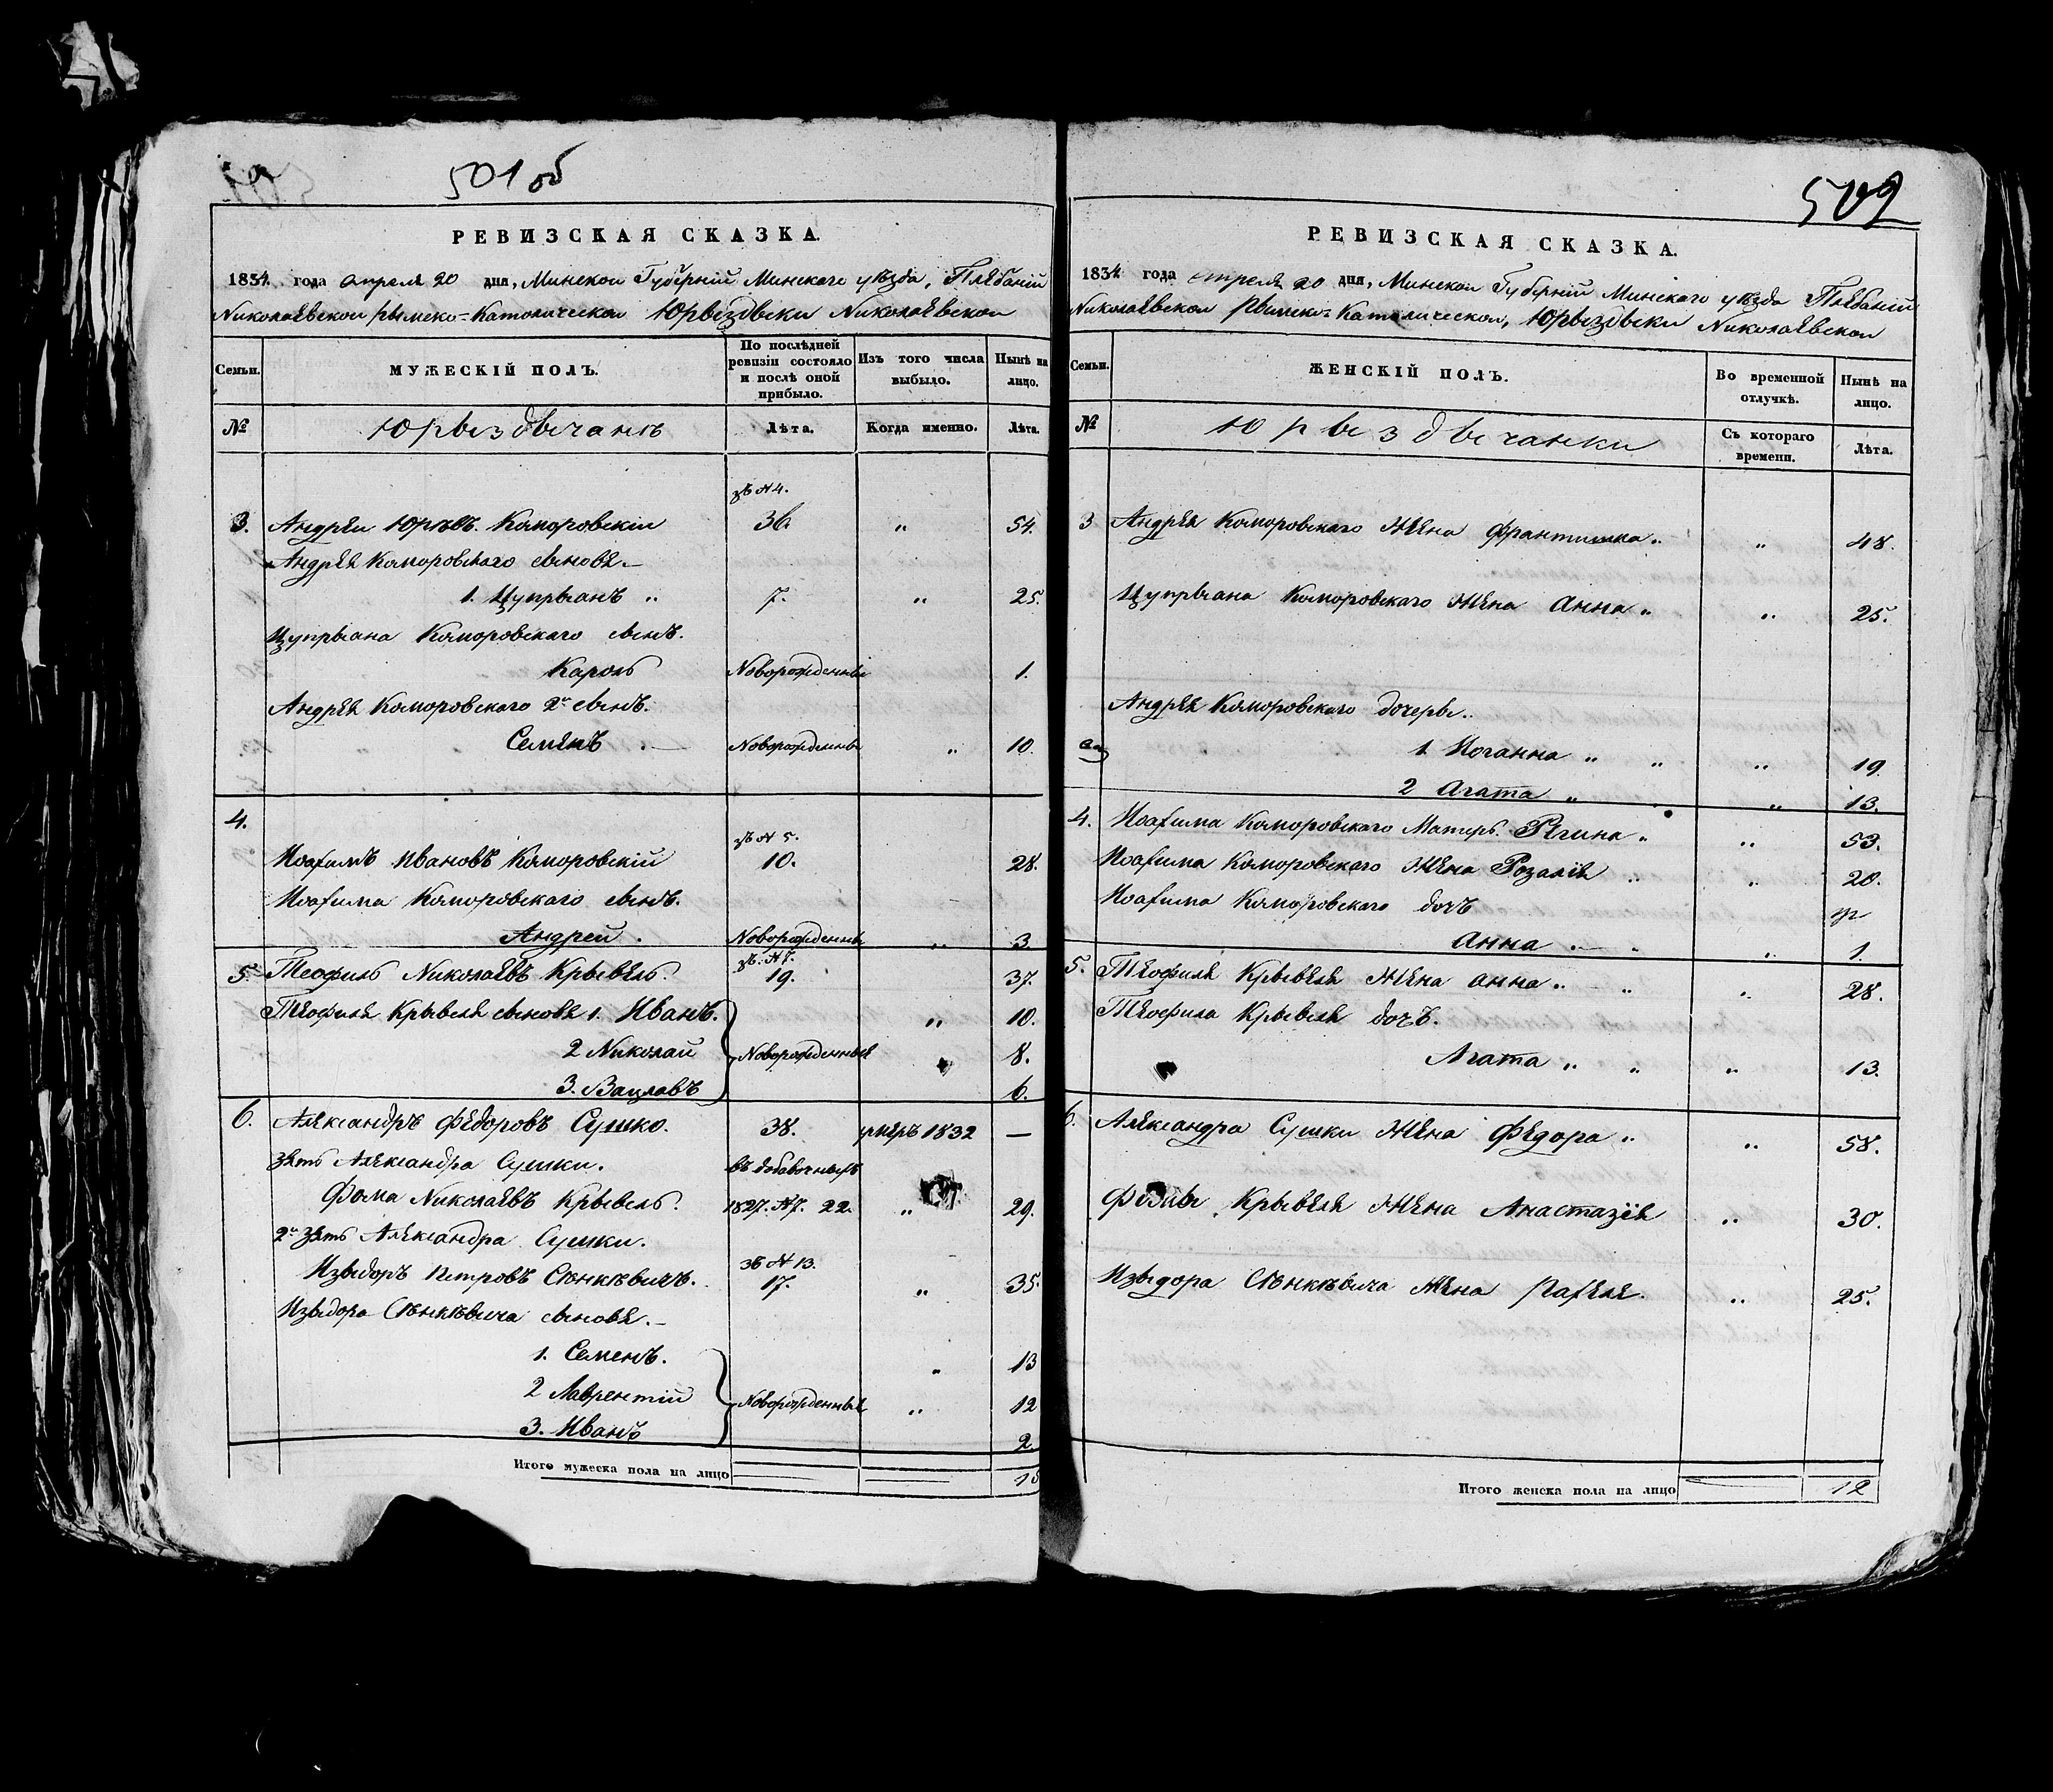 501 об
РЕВИЗСКАЯ СКАЗКА.
1834. года апреля 20 дня, Минской Губерніи Минскаго уѣзда, Плебаніи
Николаевской рымско-Католической Юрыздыки Николаевской
Семьи. МУЖЕСКІЙ ПОЛЪ. По послѣдней ревизіи состояло и послѣ оной прибыло. Изъ того числа выбыло. Нынѣ на лицо.
№ Юрыздычанъ Лѣта. Когда именно. Лѣта.
зъ N 4.
3. Андрей Юрьевъ Коморовскій 36. „ 54.
Андрея Коморовскаго сыновя
1. Цупрыанъ „ 7. „ 25.
Цупрыана Коморовскаго сынъ.
Кароль Новорожденный 1.
Андрея Коморовскаго 2й сынъ.
Семенъ Новорожденны „ 10.
4.
зъ N 5.
Иоахимъ Ивановъ Коморовскій 10. 28.
Иоахима Коморовскаго сынъ.
Андрей. Новорожденны „ 3
зъ. N 7.
5. Теофиль Николаевъ Крывель. 19. 37.
Теофиля Крывеля сыновя 1. Иванъ. „ 10.
2 Николай Новорожденныя 8.
3. Вацлавъ 6.
6. Александръ Федоровъ Сушко. 38. умеръ 1832 —
зять Александра Сушки. въ добавочныхъ
Фома Николаевъ Крывель. 1827. N 7. 22. „ 29.
2й зять Александра Сушки.
зъ N 13.
Изыдоръ Петровъ Сѣнкѣвичъ. 17. „ 35.
Изыдора Сѣнкѣвича сыновя.
1. Семенъ. „ 13
2 Лаврентій Новорожденныя „ 12
3. Иванъ 2.
Итого мужеска пола на лицо 15
509
РЕВИЗСКАЯ СКАЗКА.
1834 года апреля 20 дня, Минской Губерніи Минскаго уѣзда Плебаніи
Николаевской Рымско-Католической, Юрыздыки Николаевской
Семьи. ЖЕНСКІЙ ПОЛЪ. Во временной отлучкѣ. Нынѣ на лицо.
№ Юрыздычанки Съ котораго времени. Лѣта.
3 Андрея Коморовскаго Жена Франтишка „ „ 48.
Цупрыана Коморовскаго Жена Анна „ „ 25.
Андрея Коморовскаго дочеры
1. Иоганна „ „ „ 19.
2 Агата „ „ 13.
4. Иоахима Коморовскаго Матерь Регина „ „ 53.
Иоахима Коморовскаго Жена Розалія „ „ 20.
Иоахима Коморовскаго дочъ
Анна „ „ 1.
5. Теофиля Крывеля Жена Анна „ „ „ 28.
Теофила Крывеля дочъ.
Агата „ „ „ 13.
6. Александра Сушки Жена Федора „ „ 58.
Фомы Крывеля Жена Анастазія „ 30.
Изыдора Сѣнкѣвича Жена Рахеля. „ 25.
Итого женска пола на лицо 12